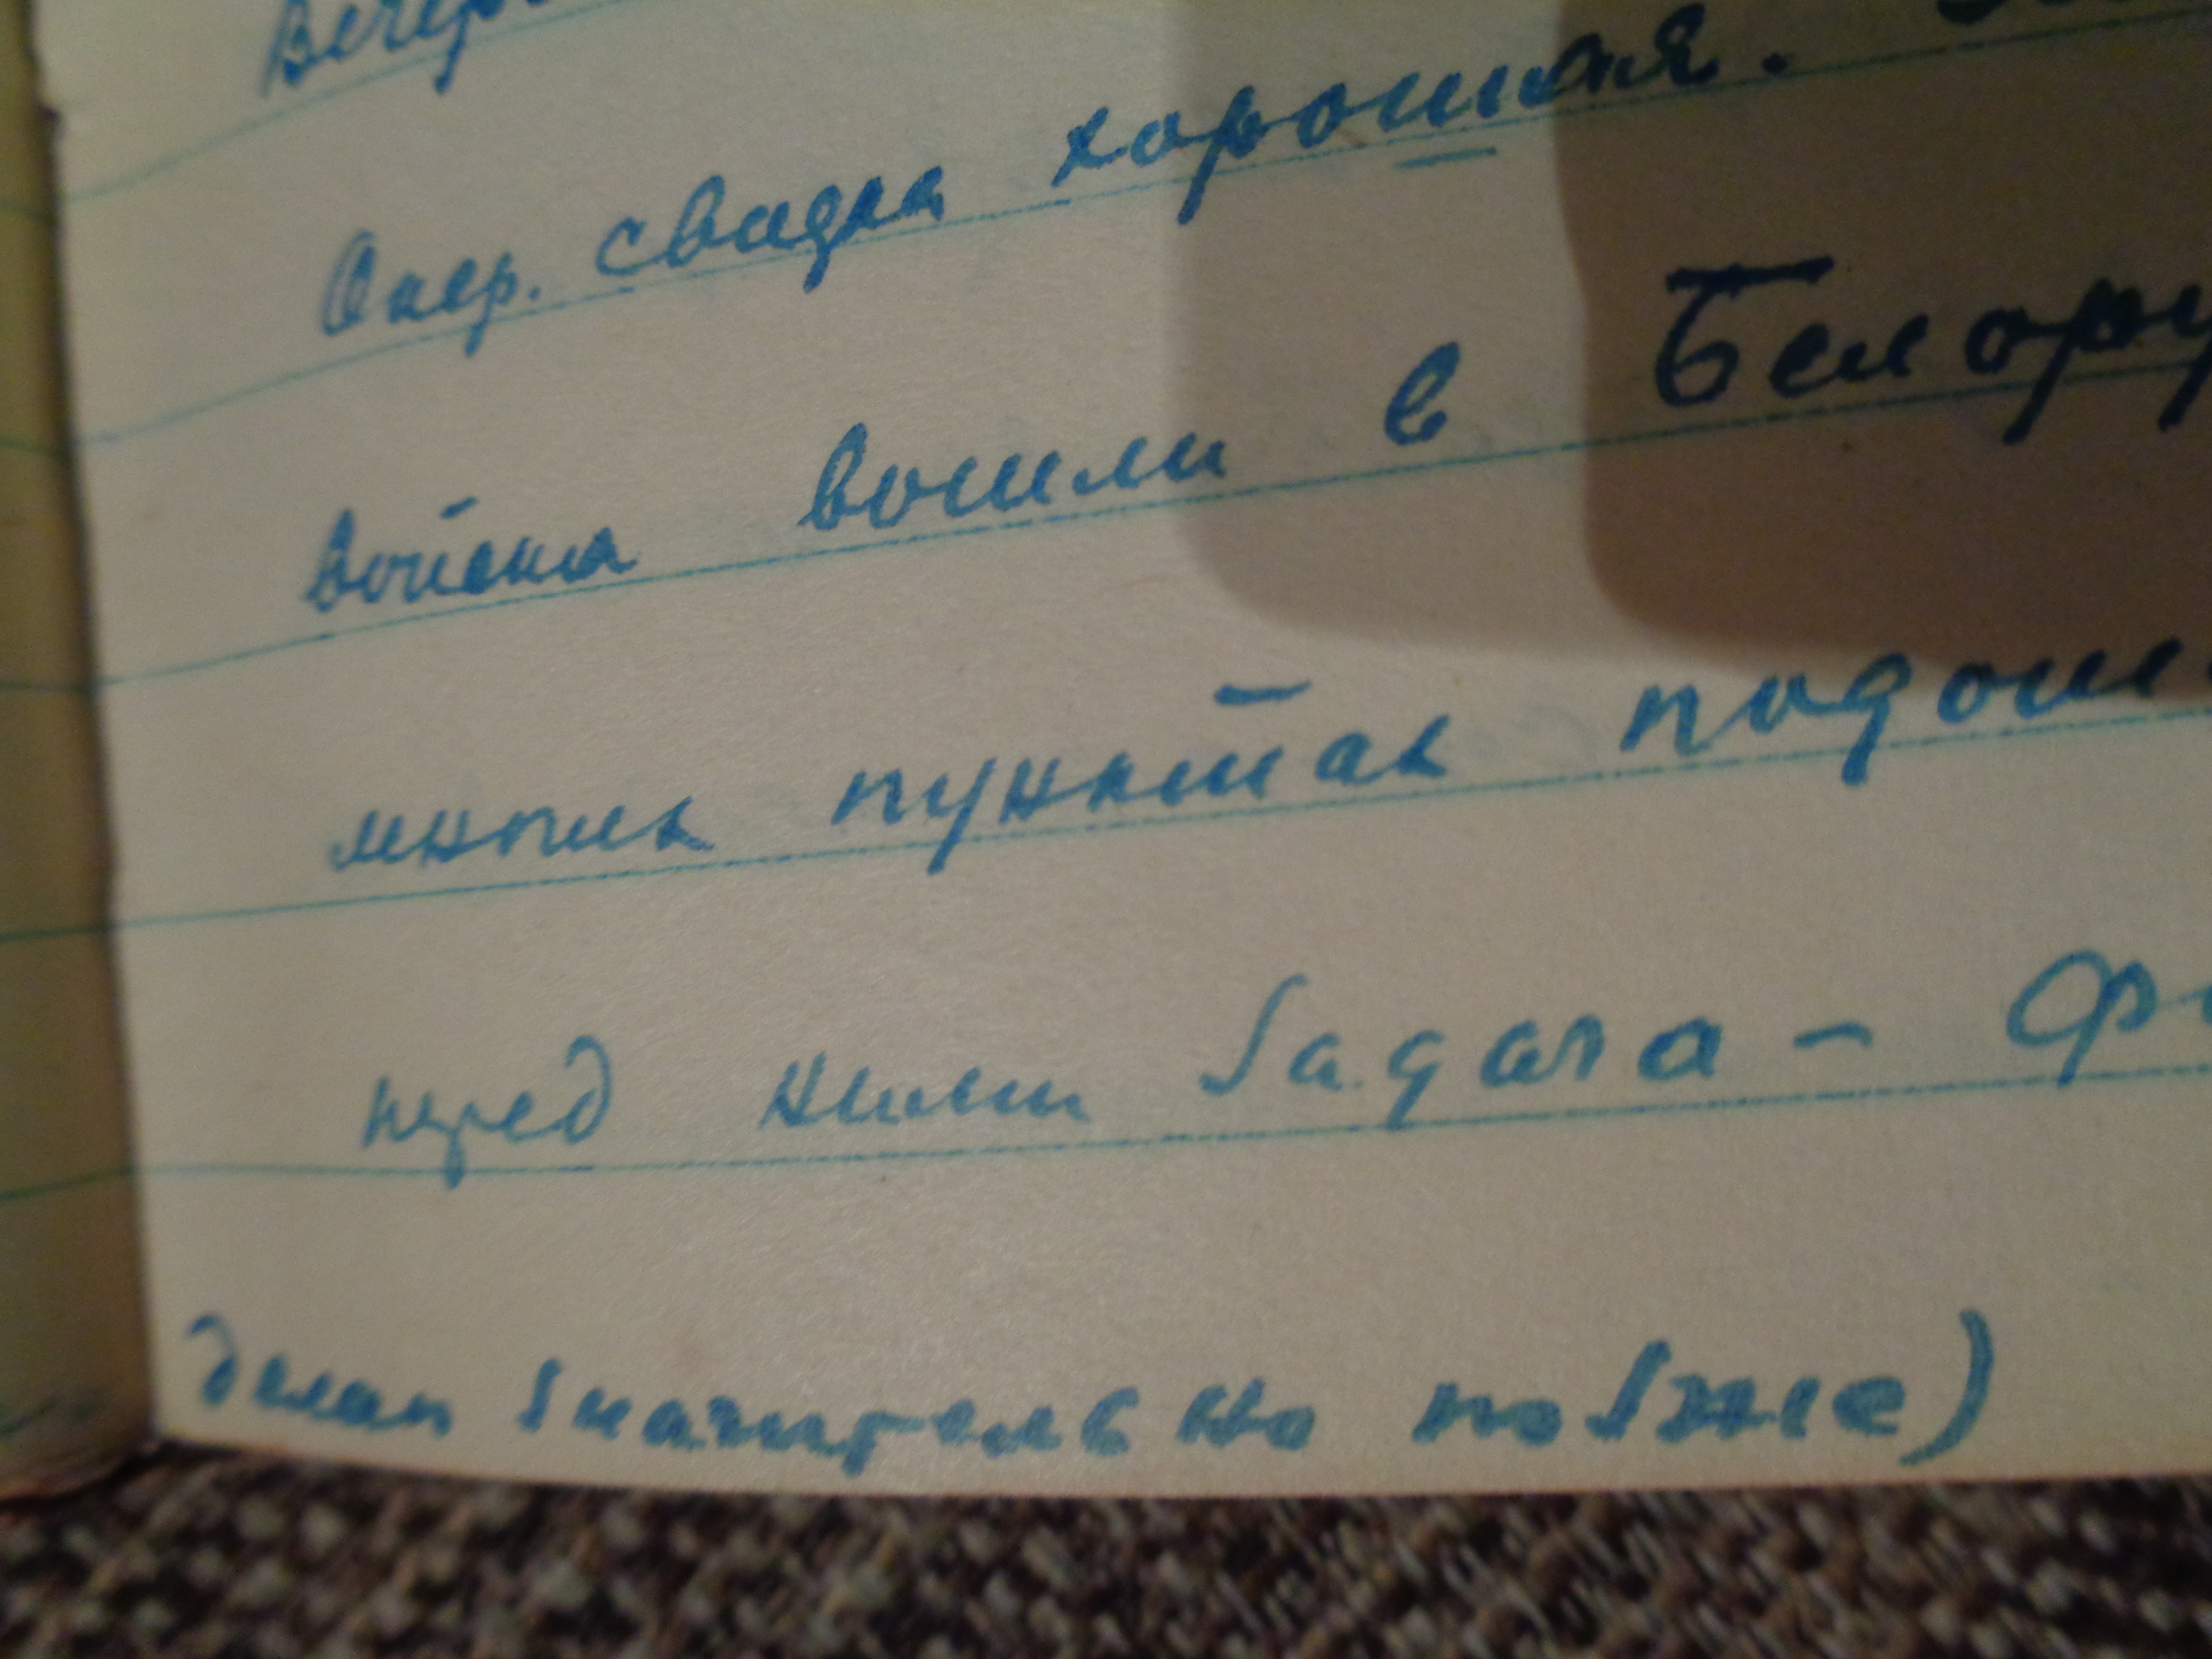 Вечер
Опер. сводка хорошая.
Войска вошли в Белору
многих пунктах подош
перед ними задача - Ф
делан значительно позже)